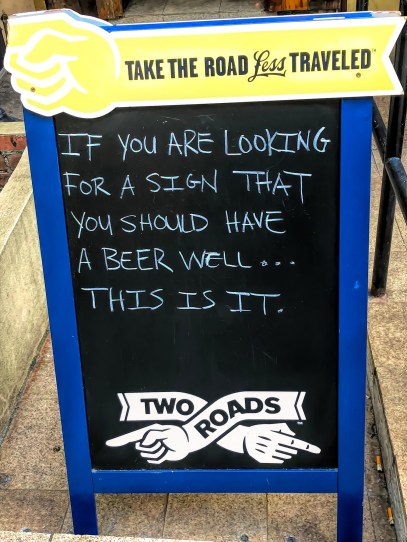 TAKE THE ROAD Less TRAVELED™
IF YOU ARE LOOKING
FOR A SIGN THAT
YOU SHOULD HAVE
A BEER WELL...
THIS IS IT.
TWO
ROADS™